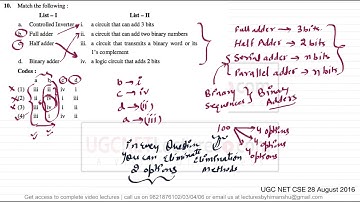 10. Match the following :
List – I List – II
a. Controlled Inverter i. a circuit that can add 3 bits
b. Full adder ii. a circuit that can add two binary numbers
c. Half adder iii. a circuit that transmits a binary word or its
1's complement
d. Binary adder iv. a logic circuit that adds 2 bits
Codes :
a b c d
(1) iii ii iv i
(2) ii iv i iii
(3) iii iv i ii
(4) iii i iv ii
b → i
c → iv
d → (ii)
a → (iii)
Full adder → 3 bits
Half Adder → 2 bits
Serial adder → n bits
Parallel adder → n bits
Binary Sequences } Binary Adders
100 → 4 options
4 options
4 options
In every Question
You can Eliminate
2 options
Elimination
methods
UGC NET CSE 28 August 2016
Get access to complete video lectures | call us on:9821876102/03/04/06 or email us at lecturesbyhimanshu@gmail.com